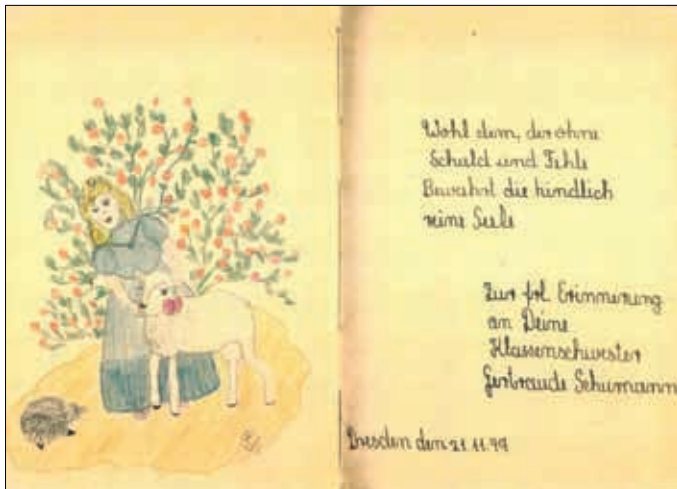 Wohl dem, der ohne
Schuld und Fehle
Bewahrt die kindlich
reine Seele
Zur frl. Erinnerung
an Deine
Klassenschwester
Gertraude Schumann
Dresden den 21.11.49